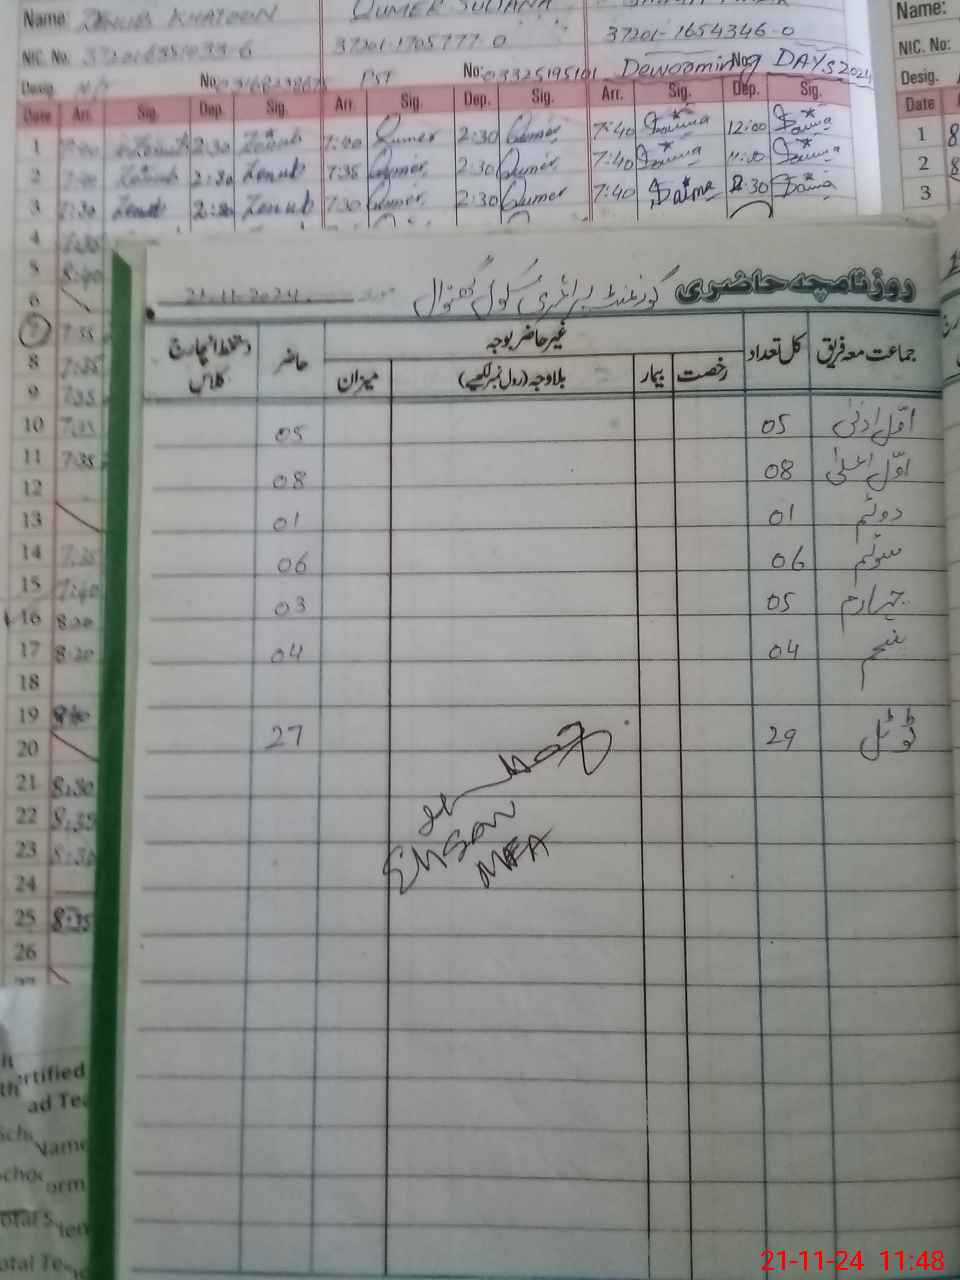 Name: ZENUB KHATOON QUMER SULTANA Name:
NIC. No. 37201-1705777-0 37201-1654346-0 NIC. No:
Desig. No. PST No: 03325195101 Dewooming DAYS 2024 Desig.
Date Arr. Sig. Dep. Sig. Arr. Sig. Dep. Sig. Arr. Sig. Dep. Sig. Date
1 Zenub 2:30 Zenub 7:40 Qumer 2:30 Qumer 7:40 12:00 1 8
2 Zenub 2:30 Zenub 7:35 Qumer 2:30 Qumer 7:40 2 8
3 7:30 Zenub Zenub 7:30 Qumer 2:30 Qumer 7:40 Saima 2:30 3
4 7:35
5 8:40
6
7 7:35
8 7:35
9 7:35
10 7:35
11 7:35
12
13
14 7:35
15 7:40
16 8:20
17 8:20
18
19
20
21 8:30
22 8:35
23 8:30
24
25 8:35
26
روزنامچہ حاضری گورنمنٹ پرائمری سکول مورخہ 21-11-2024
جماعت معہ فریق کل تعداد غیر حاضر بوجہ حاضر دستخط انچارج کلاس
رخصت بیمار بلاوجہ (رول نمبر لکھیے) میزان
اوّل ادنیٰ 05 05
اوّل اعلیٰ 08 08
دوئم 01 01
سوئم 06 06
چہارم 05 03
پنجم 04 04
ٹوٹل 29 27
Ehsan
MEA
rtified
ad Tea
Name
orm
21-11-24 11:48